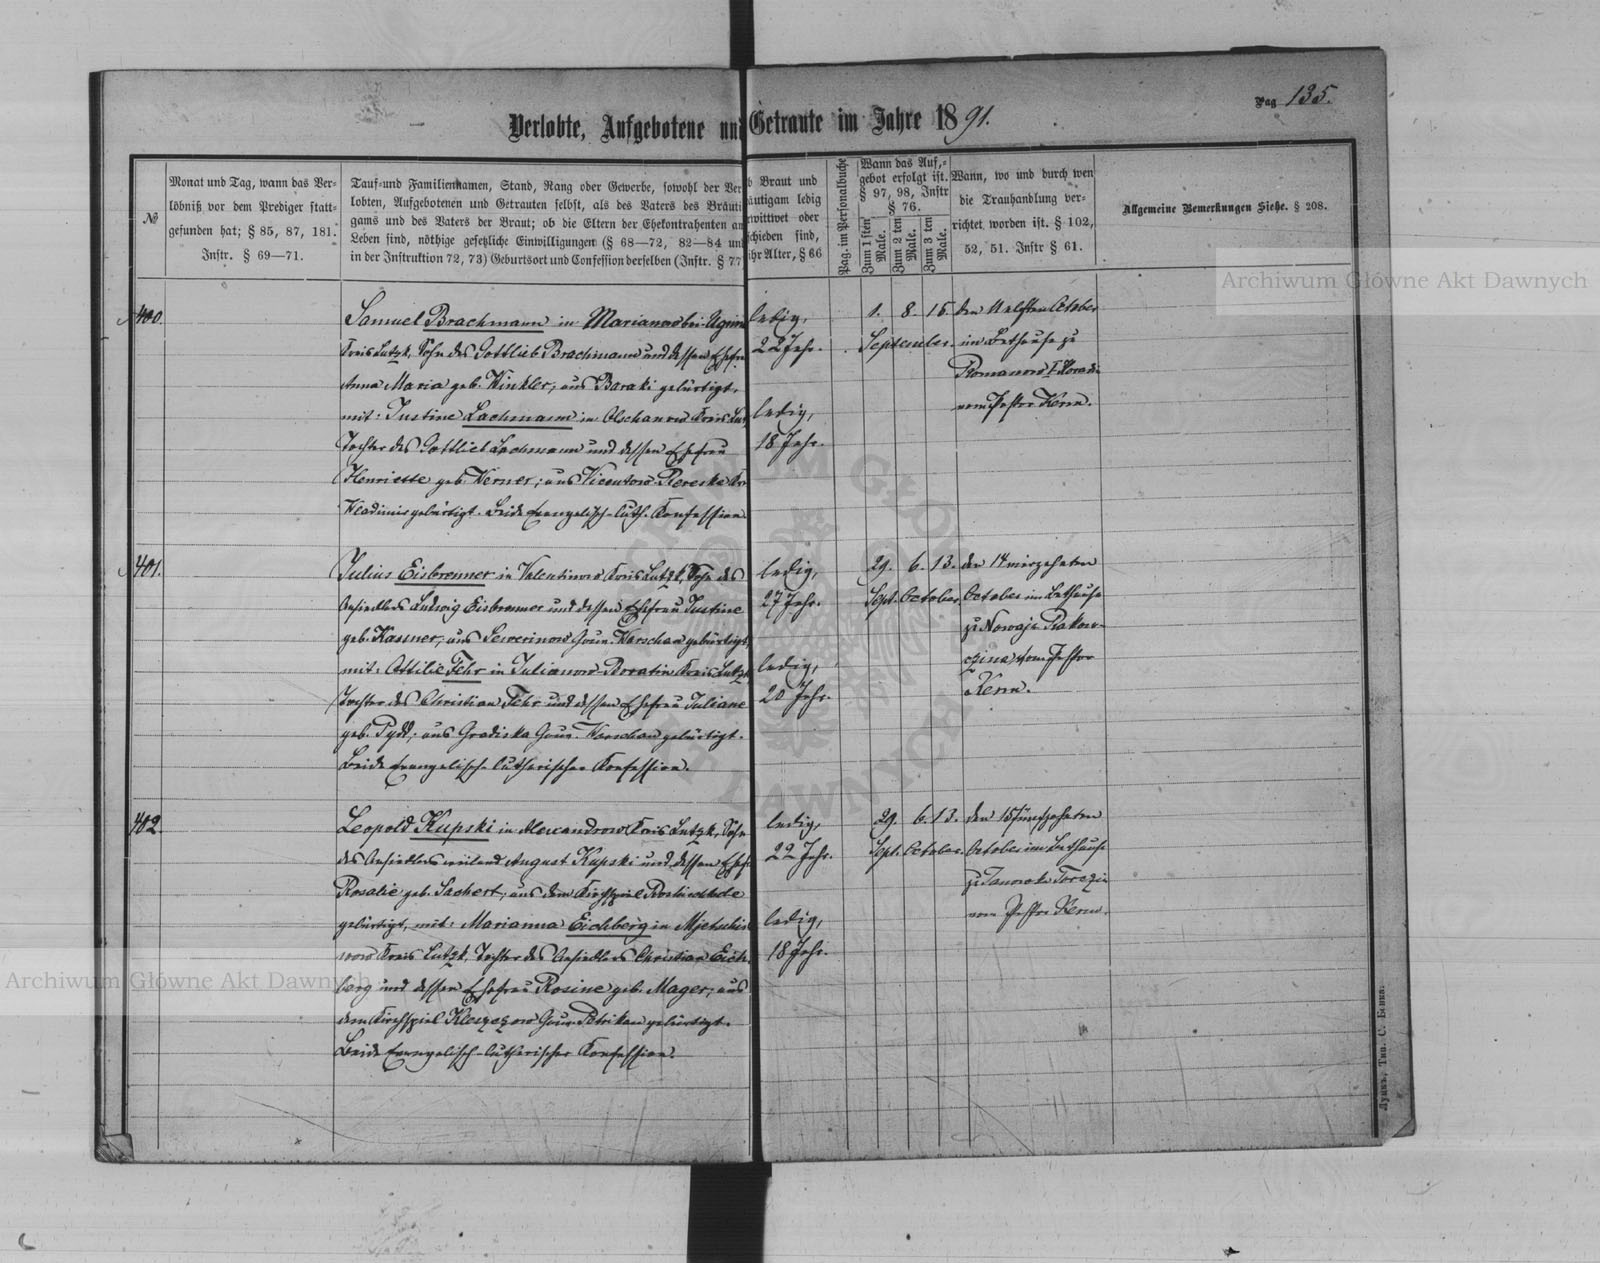 Pag 135.
Verlobte, Aufgebotene und Getraute im Jahre 1891.
№
Monat und Tag, wann das Ver-
löbniß vor dem Prediger statt-
gefunden hat; § 85, 87, 181.
Instr. § 69—71.
Tauf- und Familiennamen, Stand, Rang oder Gewerbe, sowohl der Ver
lobten, Aufgebotenen und Getrauten selbst, als des Vaters des Bräuti
gams und des Vaters der Braut; ob die Eltern der Ehekontrahenten am
Leben sind, nöthige gesetzliche Einwilligungen (§ 68—72, 82—84 und
in der Instruktion 72, 73) Geburtsort und Confession derselben (Instr. § 77
b Braut und
äutigam ledig
wittwet oder
schieden sind,
ihr Alter, § 66
Pag. im Personalbuche
Wann das Auf-
gebot erfolgt ist.
§ 97, 98, Instr
§ 76.
Zum 1 sten Male.
Zum 2 ten Male.
Zum 3 ten Male.
Wann, wo und durch wen
die Trauhandlung ver-
richtet worden ist. § 102,
52, 51. Instr § 61.
Allgemeine Bemerkungen Siehe. § 208.
400.
Samuel Brachmann in Marianow bei
Kreis Lutzk, Sohn des Gottlieb Brachmann und dessen Ehefr.
Anna Maria geb. Winkler, aus Baraki gebürtigt,
mit: Justine Lachmann in Olschanow Kreis Lutz
Tochter des Gottlieb Lachmann und dessen Ehefrau
Henriette geb. Werner; aus
Wladimir gebürtigt. Beide Evangelisch-luth. Konfession.
ledig,
22 Jahr.
ledig,
18 Jahr.
1. 8. 15.
September.
den Oktober
im Bethause zu
Romanow I
vom Pastor Kern.
401.
Julius Eisbrenner in Valentinow Kreis Lutzk, Sohn des
Ansiedlers Ludwig Eisbrenner und dessen Ehefrau Justine
geb. Kassner, aus Sewerinow Gouv. Warschau gebürtigt,
mit: Ottilie Fehr in Julianow-Boratin Kreis Lutzk
Tochter des Christian Fehr und dessen Ehefrau Juliane
geb. Pydd, aus Gradiska Gouv. Warschau gebürtigt.
Beide Evangelisch-lutherischer Konfession.
ledig,
27 Jahr.
ledig,
20 Jahr.
29. 6. 13.
Sept. October.
den 14 vierzehnten
October im Bethause
zu Nowaja Rakow-
czina, vom Pastor
Kern.
402.
Leopold Kupski in Alexandrow Kreis Lutzk, Sohn
des Ansiedlers weiland August Kupski und dessen Ehefr
Rosalie geb. Sachert, aus dem Kirchspiel
gebürtigt, mit: Marianna Eichberg in
now Kreis Lutzk, Tochter des Ansiedlers Christian Eich
berg und dessen Ehefrau Rosine geb. Mager, aus
dem Kirchspiel Kleszczow Gouv. Petrikau gebürtigt.
Beide Evangelisch-lutherischer Konfession.
ledig,
22 Jahr.
ledig,
18 Jahr.
29. 6. 13.
Sept. October.
den 15 fünfzehnten
October im Bethause
zu Janowka
vom Pastor Kern.
Луцкъ, Тип. С. Бенка.
Archiwum Główne Akt Dawnych
Archiwum Główne Akt Dawnych